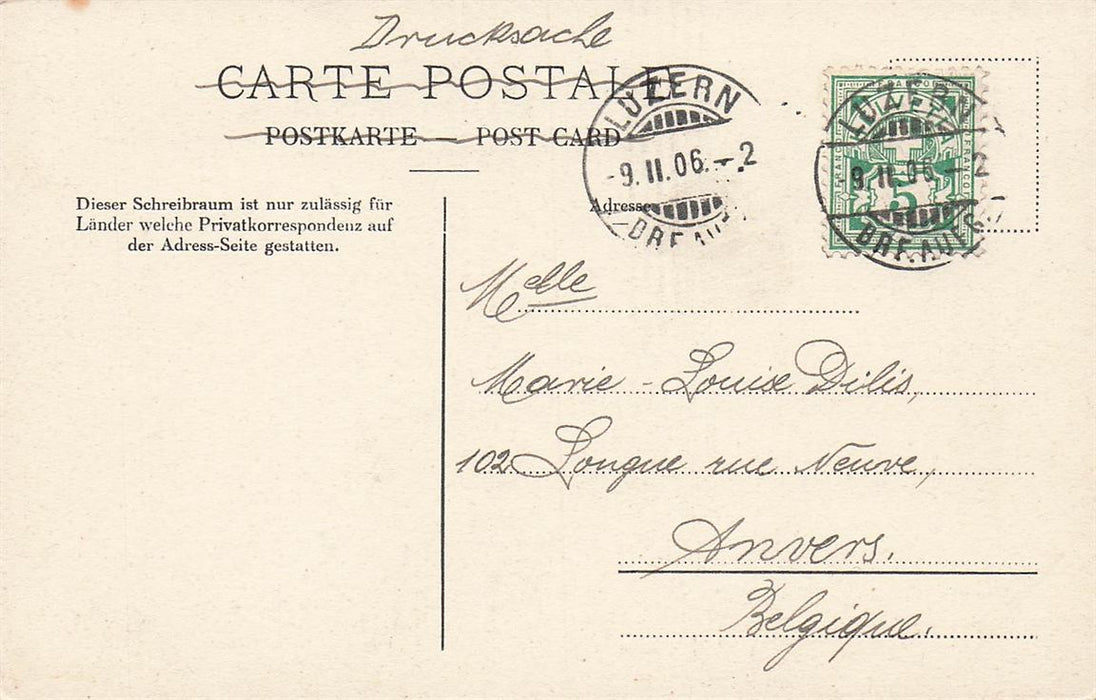 Drucksache
CARTE POSTALE
POSTKARTE — POST CARD
LUZERN
-9.II.06.-2
BRF. AUF
LUZERN
-9.II.06.-2
BRF. AUFG
FRANCO
5
Adresse
Dieser Schreibraum ist nur zulässig für
Länder welche Privatkorrespondenz auf
der Adress-Seite gestatten.
Melle
Marie-Louise Dilis,
102 Longue rue Neuve,
Anvers.
Belgique.